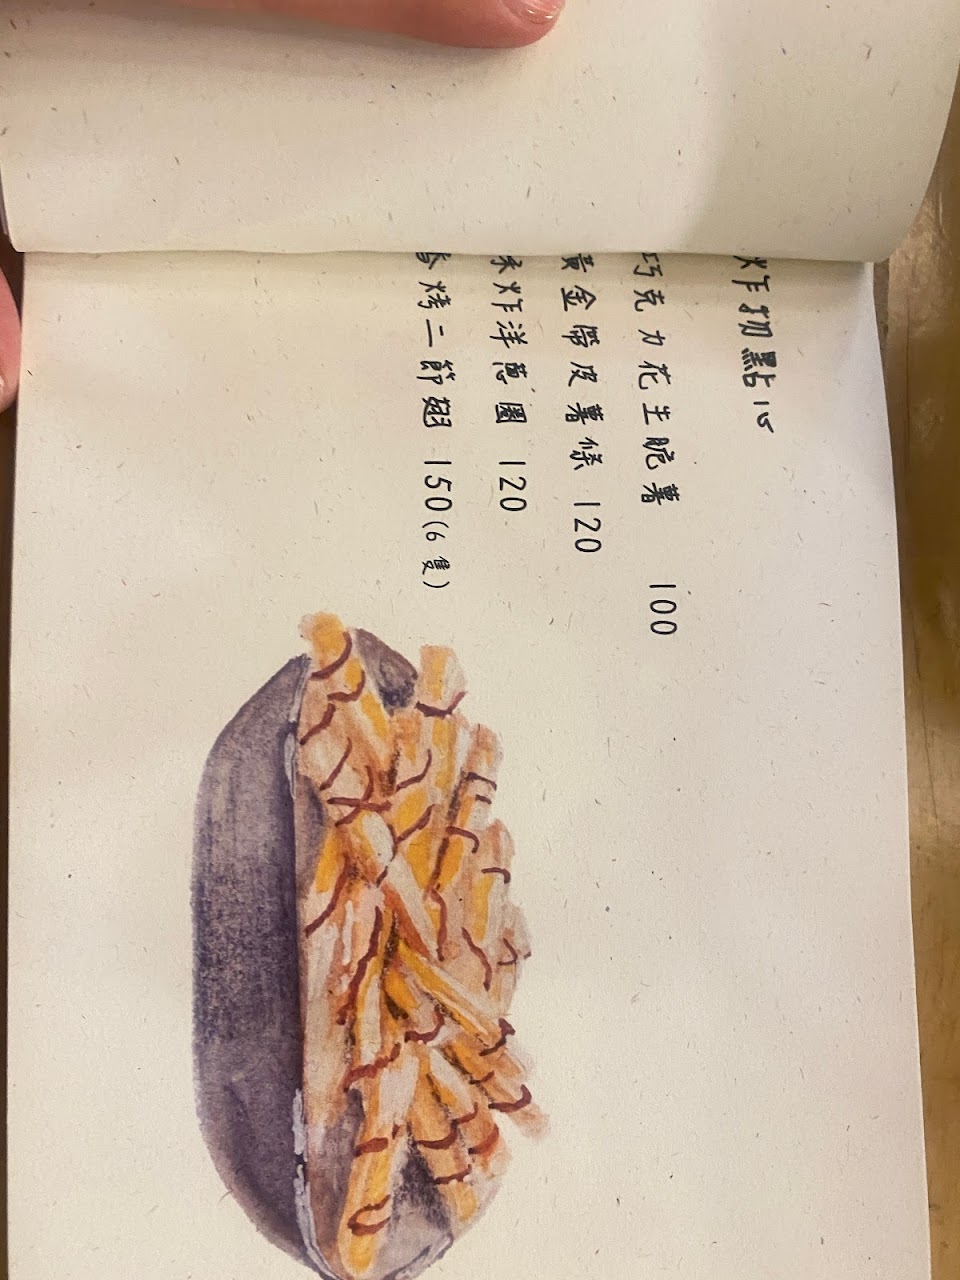 炸物點心
巧克力花生脆薯 100
黃金帶皮薯條 120
酥炸洋蔥圈 120
香烤二節翅 150(6隻)